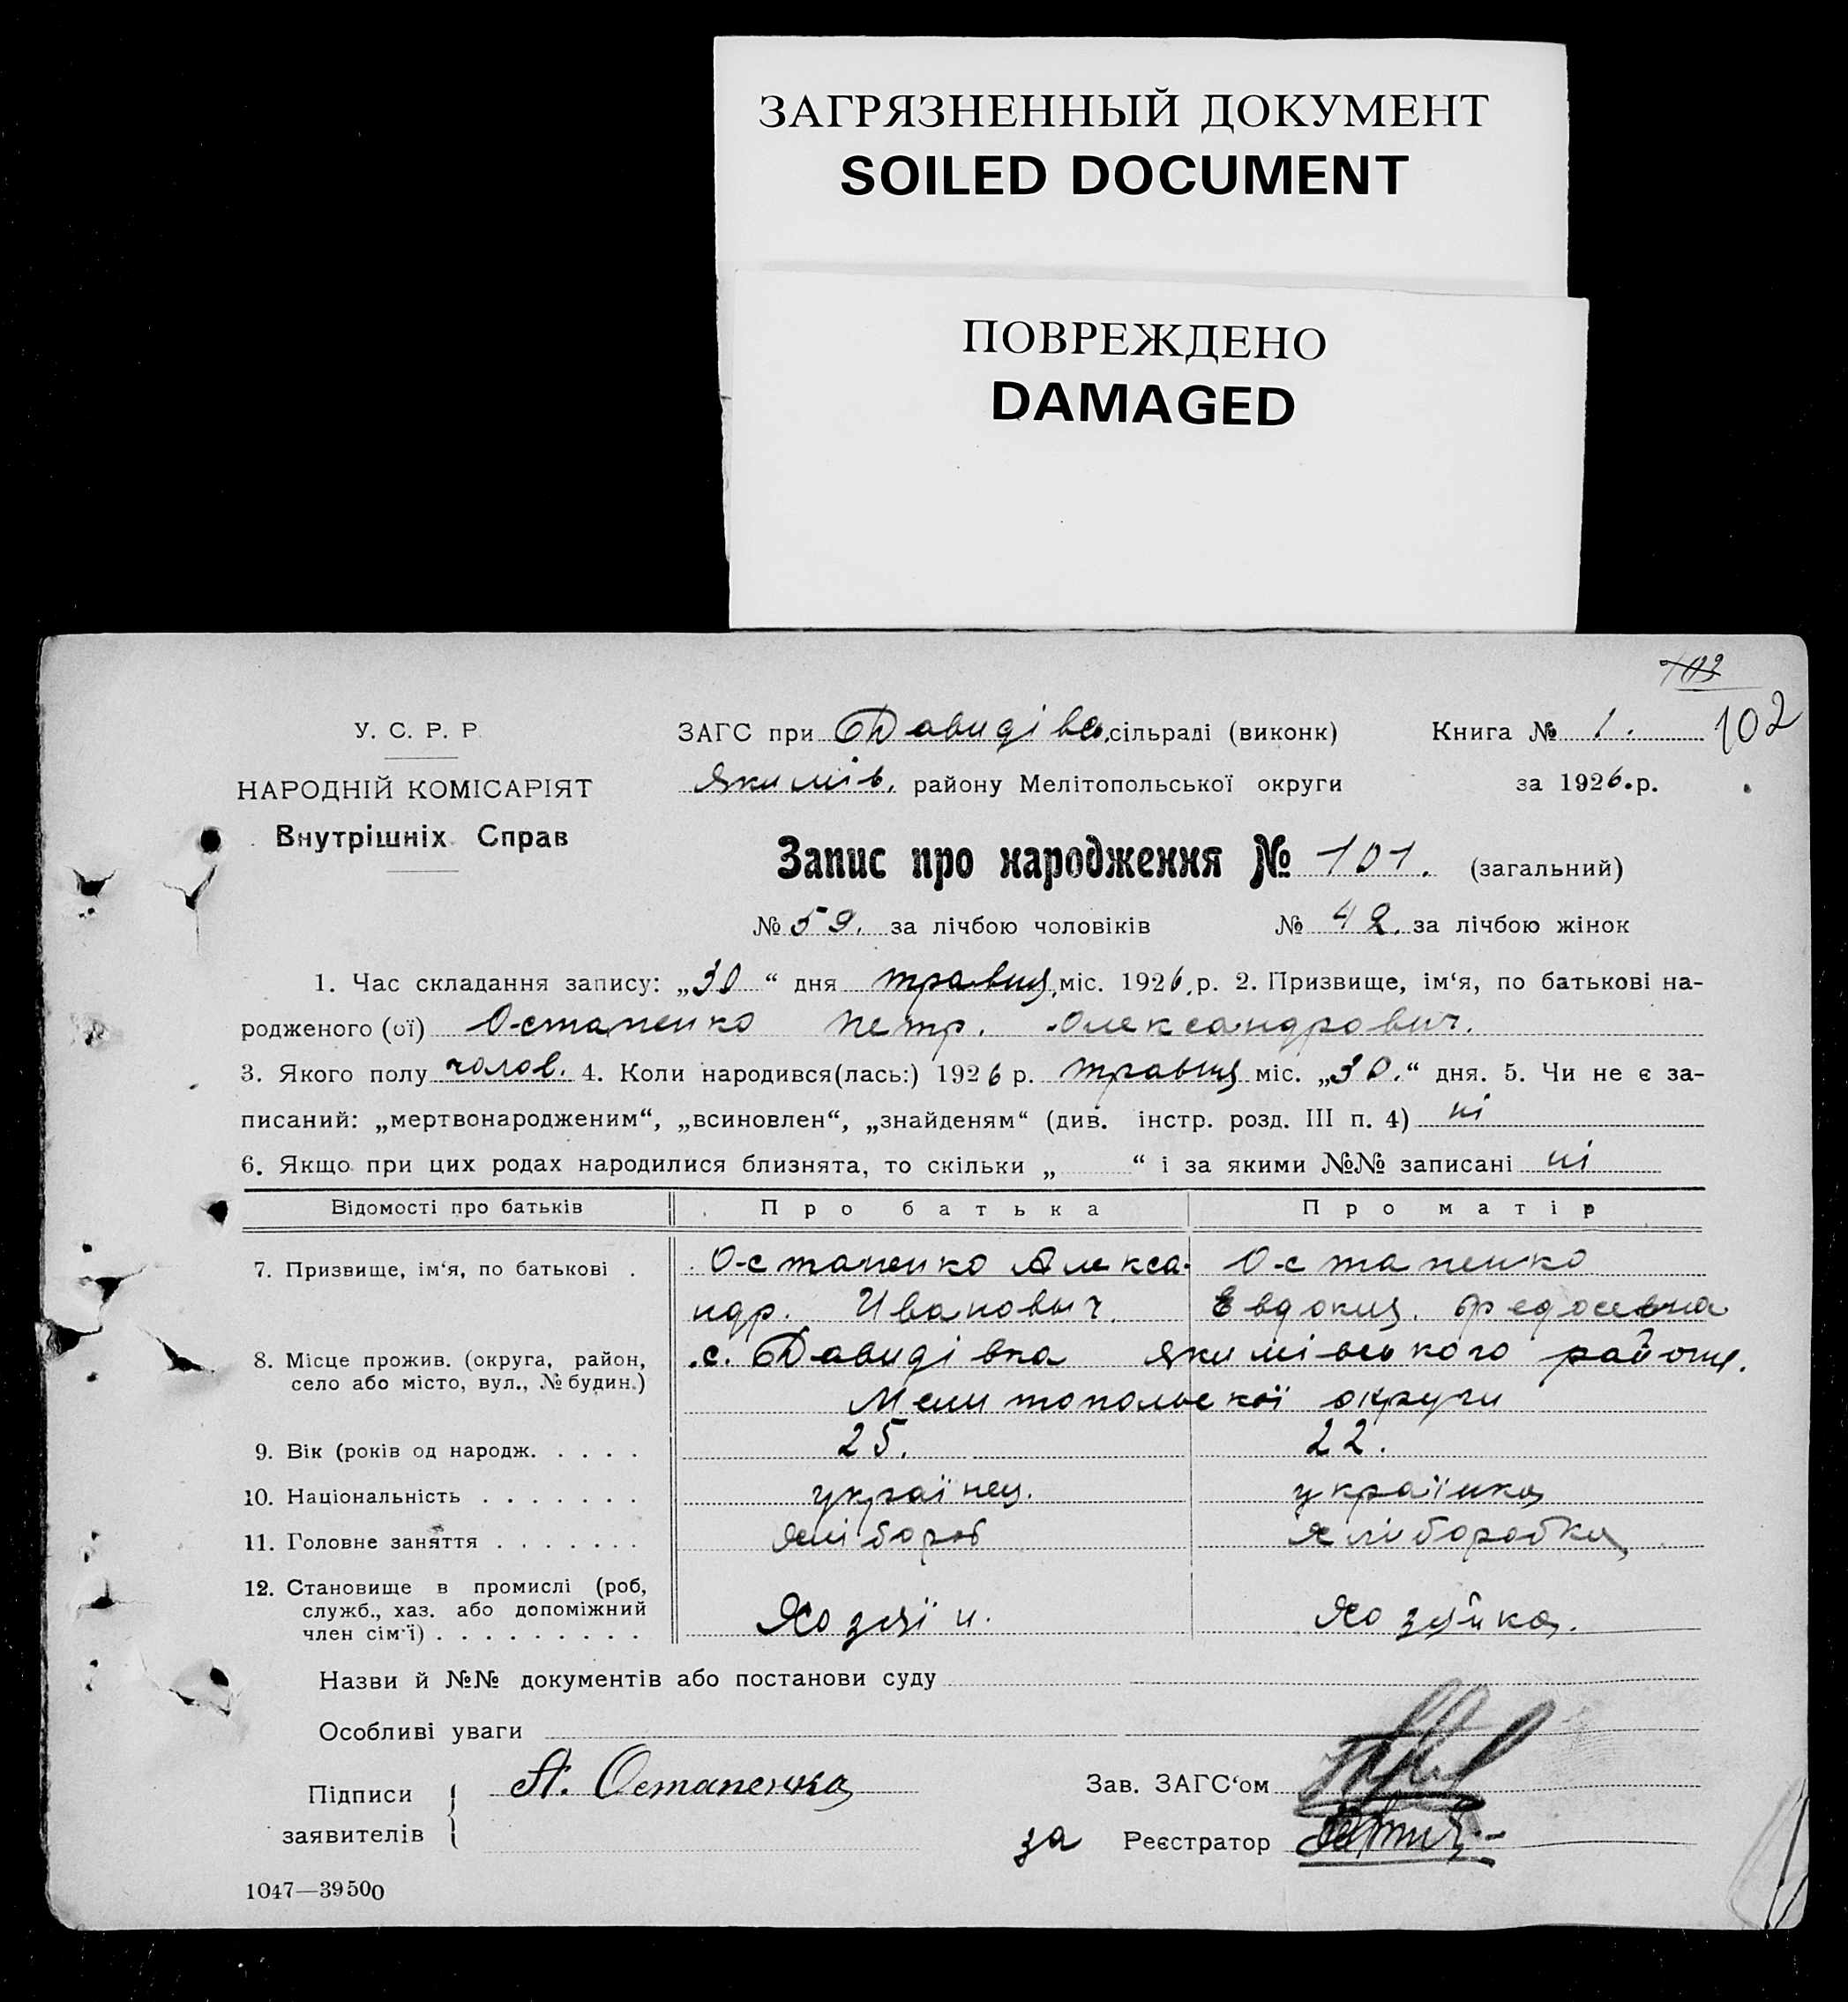 ЗАГРЯЗНЕННЫЙ ДОКУМЕНТ
SOILED DOCUMENT
ПОВРЕЖДЕНО
DAMAGED
103
102
У. С. Р. Р.
НАРОДНІЙ КОМІСАРІЯТ
Внутрішніх Справ
ЗАГС при Давидівс. сільраді (виконк) Книга № 1.
Якимів. району Мелітопольської округи за 1926.р.
Запис про народження № 101. (загальний)
№ 59. за лічбою чоловіків № 42. за лічбою жінок
1. Час складання запису: „30“ дня травня, міс. 1926, р. 2. Призвище, ім‘я, по батькові на-
родженого (ої) Остапенко Петр. Олександрович.
3. Якого полу чолов. 4. Коли народився(лась:) 1926 р. травня міс. „30.“ дня. 5. Чи не є за-
писаний: „мертвонародженим“, „всиновлен“, „знайденям“ (див. інстр. розд. III п. 4) ні
6. Якщо при цих родах народилися близнята, то скільки „ “ і за якими №№ записані ні
Відомості про батьків Про батька Про матір
7. Призвище, ім‘я, по батькові . Остапенко Алекса- Остапенко
ндр. Ивановыч. Евдокия. Федосевна
8. Місце прожив. (округа, район, с. Давидівка Якимівського району.
село або місто, вул., № будин.)
Мелитопольскої округи
9. Вік (років од народж. . . . . 25. 22.
10. Національність . . . . . . . українец. українка
11. Головне заняття . . . . . . . хлібороб хліборобка
12. Становище в промислі (роб,
служб., хаз. або допоміжний
член сім‘ї) . . . . . . . . . Хозяїн. Хозяйка.
Назви й №№ документів або постанови суду
Особливі уваги
Підписи А. Остапенко Зав. ЗАГС‘ом
заявителів за Реєстратор
1047—39500